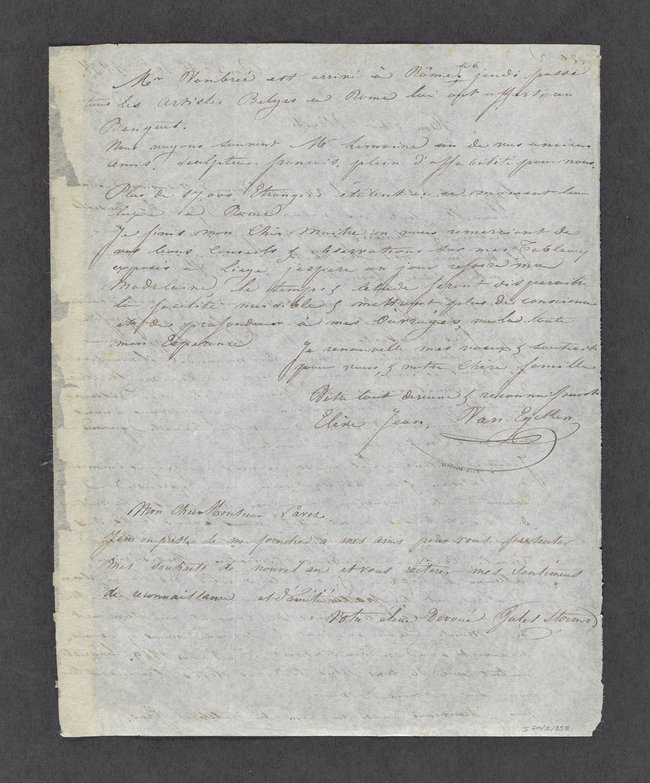 Mr Vanbrié est arrivé à Rome jeudi passé
tous les artistes Belges à Rome lui ont offert un
Benquet.
Nous voyons souvent Mr Lemoine un de vos anciens
amis, sculpteur francais, plein d'affabilité pour nous.
Plus de 17,000 Etrangers étalent en ce moment leur
luxe à Rome
Je finis mon Cher Maitre en vous remerciant de
vos bons conseils & observations sur mes Tableaux
exposés à Liége, j'espère un jour refaire ma
Madelaine le temps & l'étude feront disparaitre
la facilité nuisible & mettront plus de conscience
et de profondeur à mes Ouvrages, voila toute
mon Espérance
Je renouvelle mes vœux & souhaits
pour vous, & votre Chère famille
Votre tout dévoué & reconnaissant
Elève Jean Van Eycken
Mon Cher Monsieur
J'em'empresse de me joindre a mes amis pour vous présenter
mes souhaits de nouvel an et vous réiterer mes sentimens
de reconnaissance et d'amitié
Votre élève Devoué Jules Storms